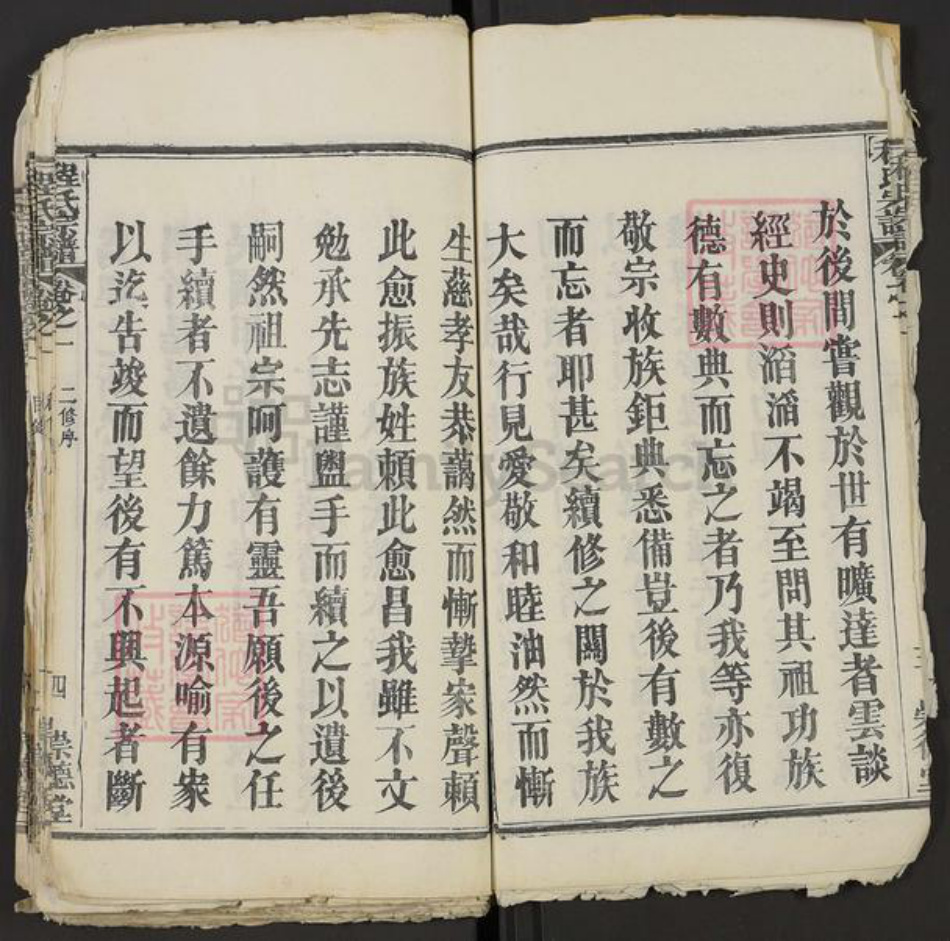 於後間嘗觀於世有曠達者雲談
經史則滔滔不竭至問其祖功族
德有數典而忘之者乃我等亦復
敬宗收族鉅典悉備豈後有數之
而忘者耶甚矣續修之關於我族
大矣哉行見愛敬和睦油然而慚
生慈孝友恭藹然而慚摯家聲賴
此愈振族姓頼此愈昌我雖不文
勉承先志謹盥手而續之以遺後
嗣然祖宗呵護有靈吾願後之任
手續者不遺餘力篤本源喻有家
以迄告竣而望後有不興起者斷
程氏宗譜 卷之一 二修序 四 崇德堂
FamilySearch